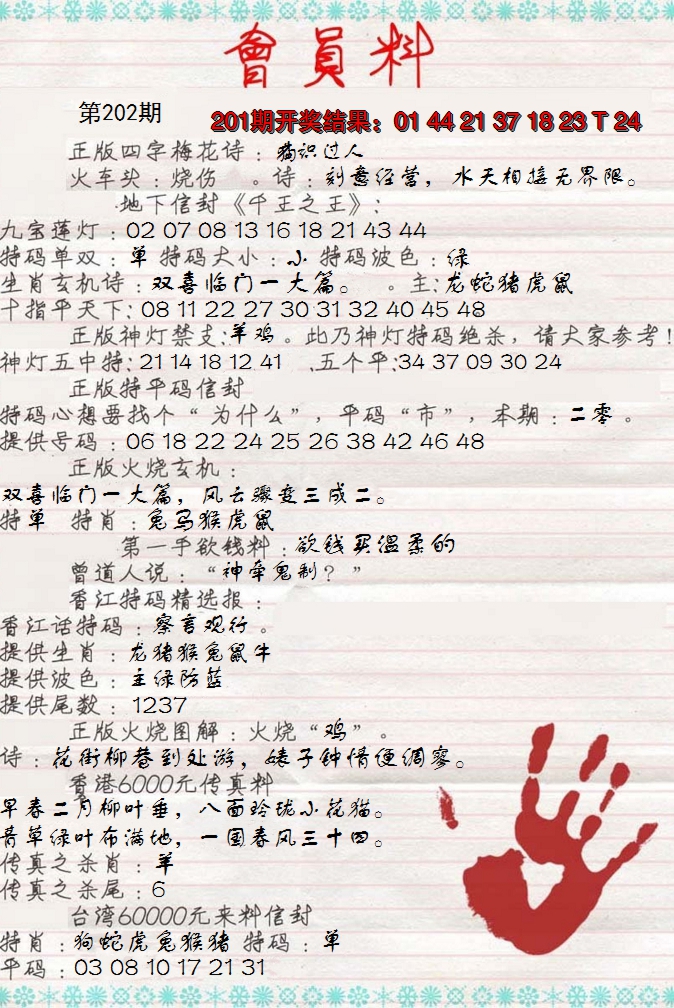 會員料
第202期
201期开奖结果：01 44 21 37 18 23 T 24
正版四字梅花诗：猫识过人
火车头：烧伤 。诗：刻意经营，水天相接无界限。
地下信封《千王之王》：
九宝莲灯：02 07 08 13 16 18 21 43 44
特码单双：单 特码大小：小 特码波色：绿
生肖玄机诗：双喜临门一大篇。 。主：龙蛇猪虎鼠
十指平天下：08 11 22 27 30 31 32 40 45 48
正版神灯禁支：羊鸡。此乃神灯特码绝杀，请大家参考！
神灯五中特：21 14 18 12.41 .五个平：34 37 09 30 24
正版特平码信封
特码心想要找个“为什么”，平码“市”，本期：二零。
提供号码：06 18 22 24 25 26 38 42 46 48
正版火烧玄机：
双喜临门一大篇，风云骤变三成二。
特单 特肖：兔马猴虎鼠
第一手欲钱料：欲钱买温柔的
曾道人说：“神牵鬼制？”
香江特码精选报：
香江话特码：察言观行。
提供生肖：龙猪猴兔鼠牛
提供波色：主绿防蓝
提供尾数：1237
正版火烧图解：火烧“鸡”。
诗：花街柳巷到处游，婊子钟情便绸寥。
香港6000元传真料
早春二月柳叶垂，八面玲珑小花猫。
青草绿叶布满地，一国春风三十四。
传真之杀肖：羊
传真之杀尾：6
台湾60000元来料信封
特肖：狗蛇虎兔猴猪 特码：单
平码：03 08 10 17 21 31